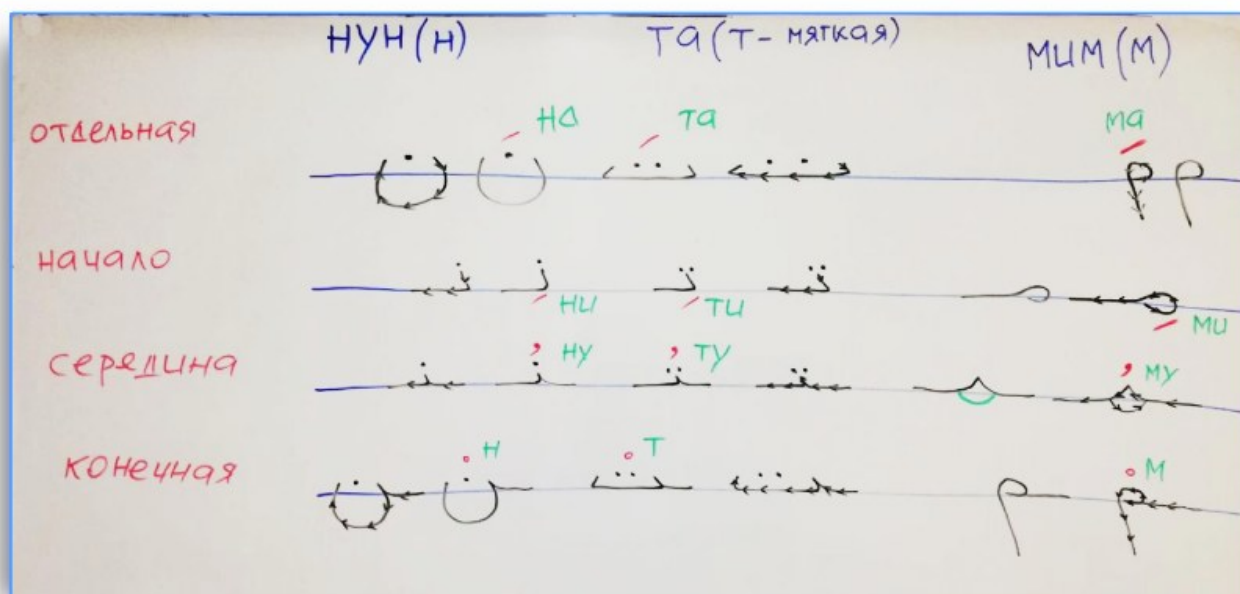 НУН (Н) ТА (Т - мягкая) МИМ (М)
отдельная نَ НА تَ ТА مَ МА م
начало نِـ НИ تِـ ТИ مـ مِـ МИ
середина ـنـ ـنُـ НУ ـتُـ ТУ ـتـ ـمـ ـمُـ МУ
конечная ـن ـنْ Н ـتْ Т ـت ـم ـمْ М